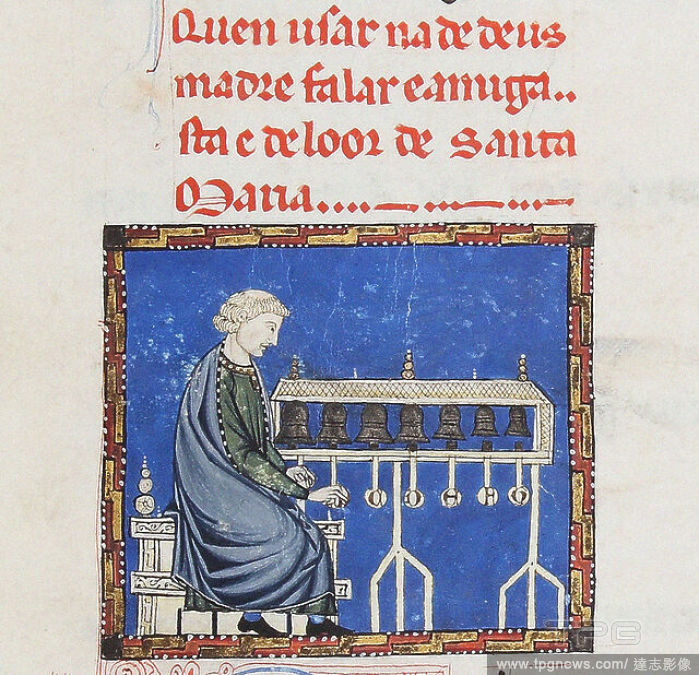 Quen usar na de deus
madre falar e amiga..
sta e de loor de Santa
Maria....
TPG
www.tpgnews.com/達志影像